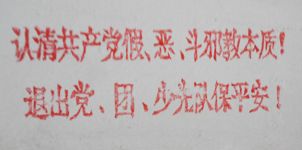 认清共产党假、恶、斗邪教本质!
退出党、团、少先队保平安!